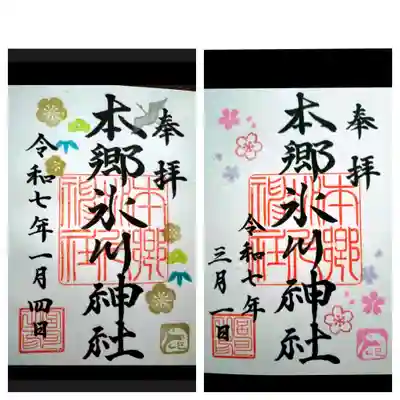 奉拝
本郷氷川神社
令和七年一月四日
奉拝
本郷氷川神社
令和七年
三月一日